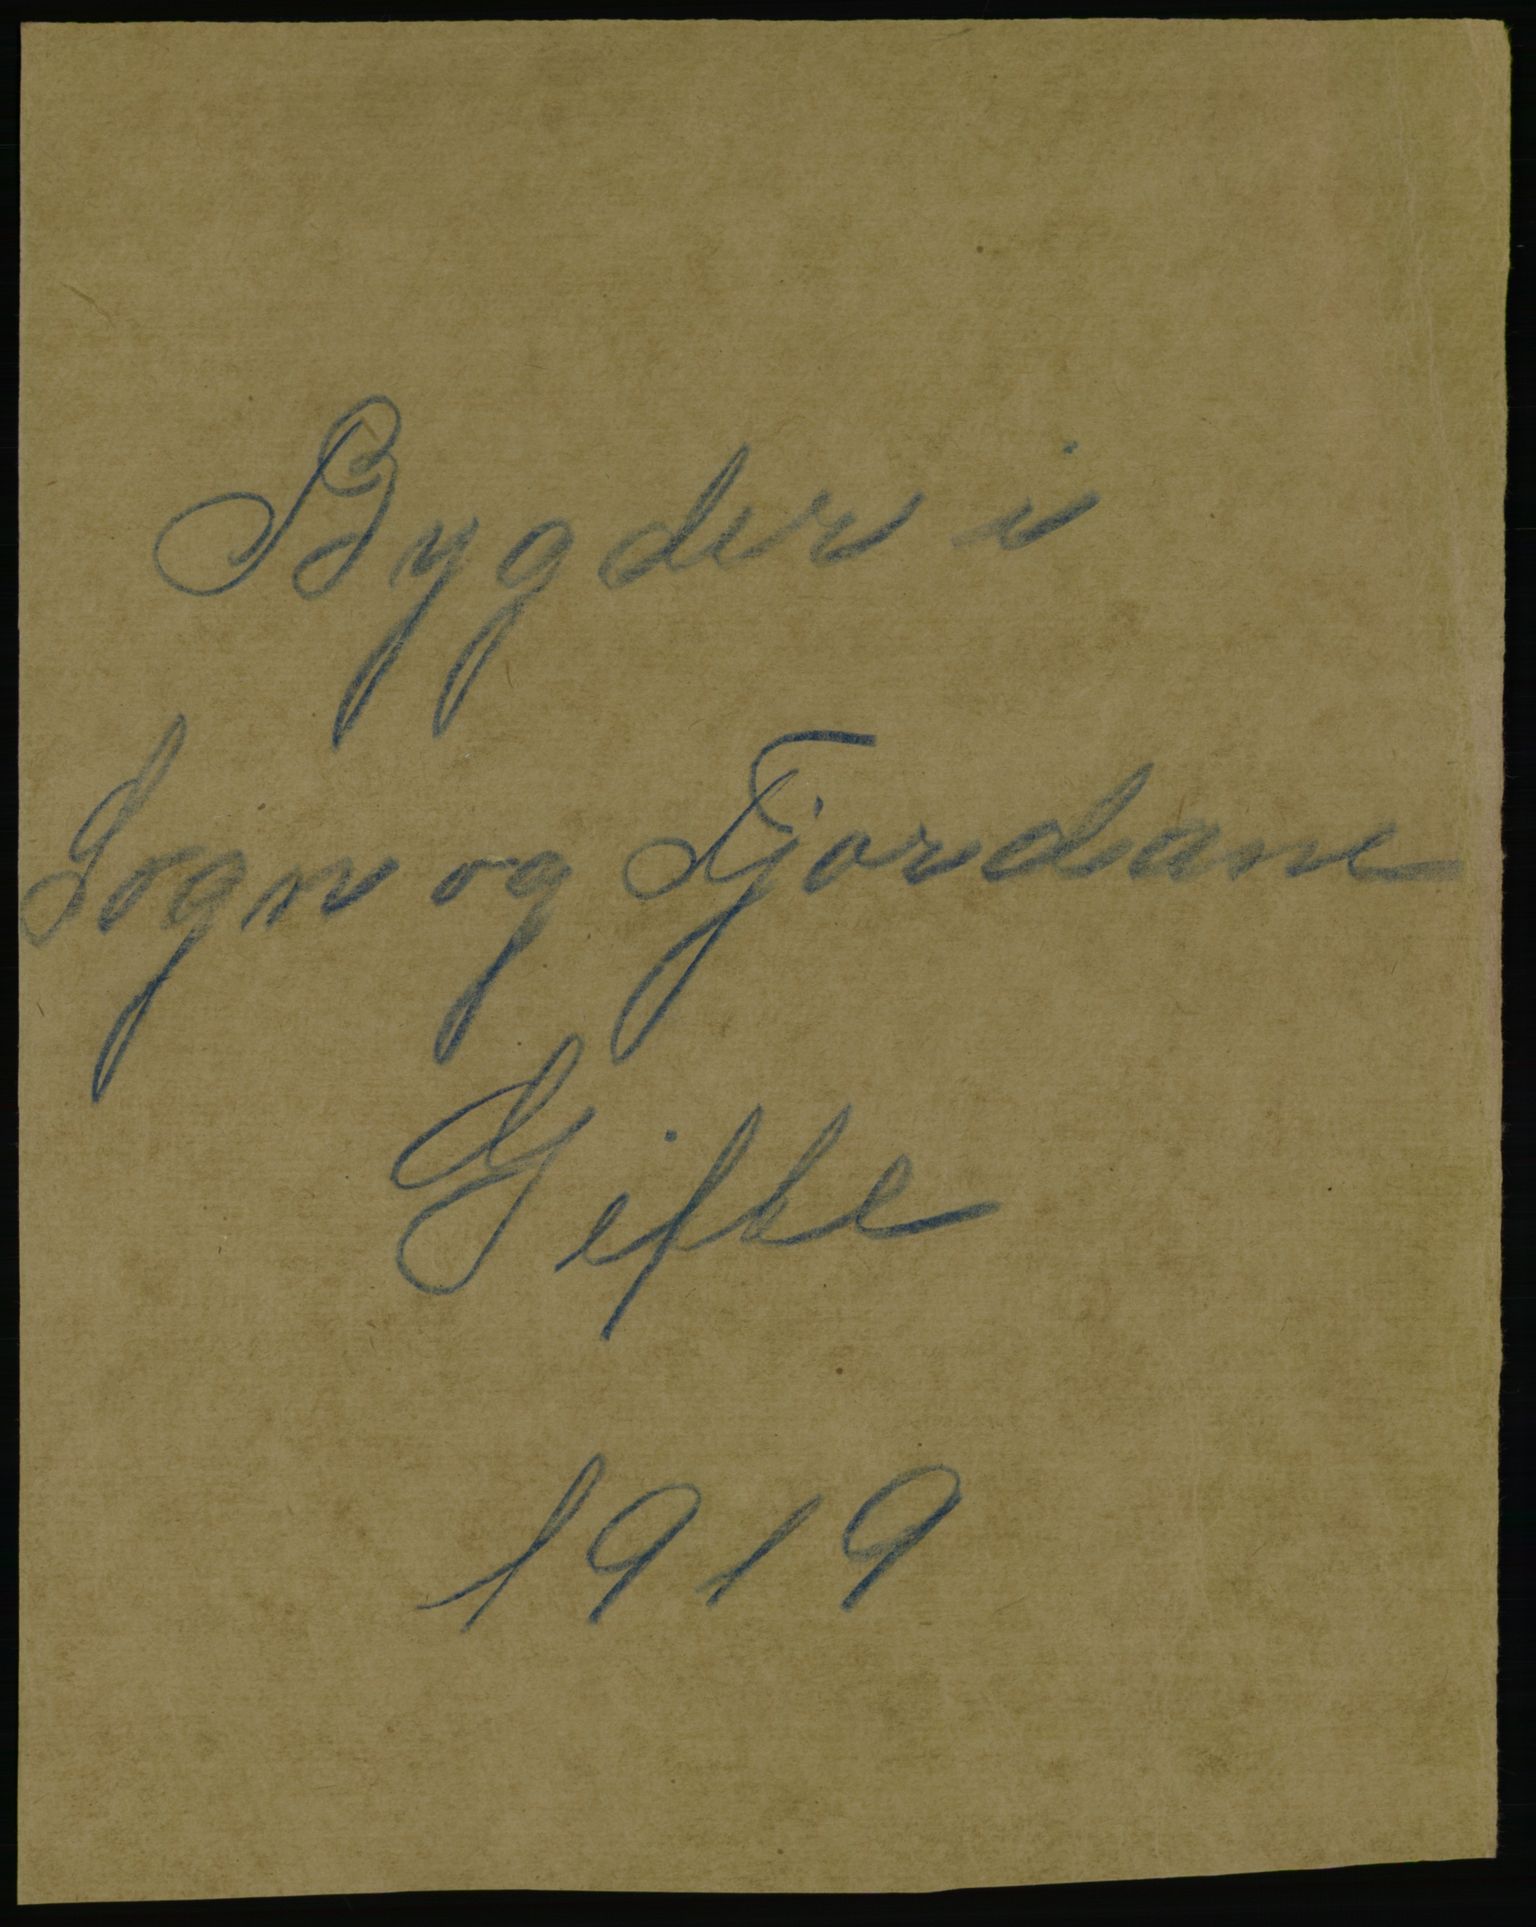 Bygder i
Sogn og Fjordane
Gifte
1919